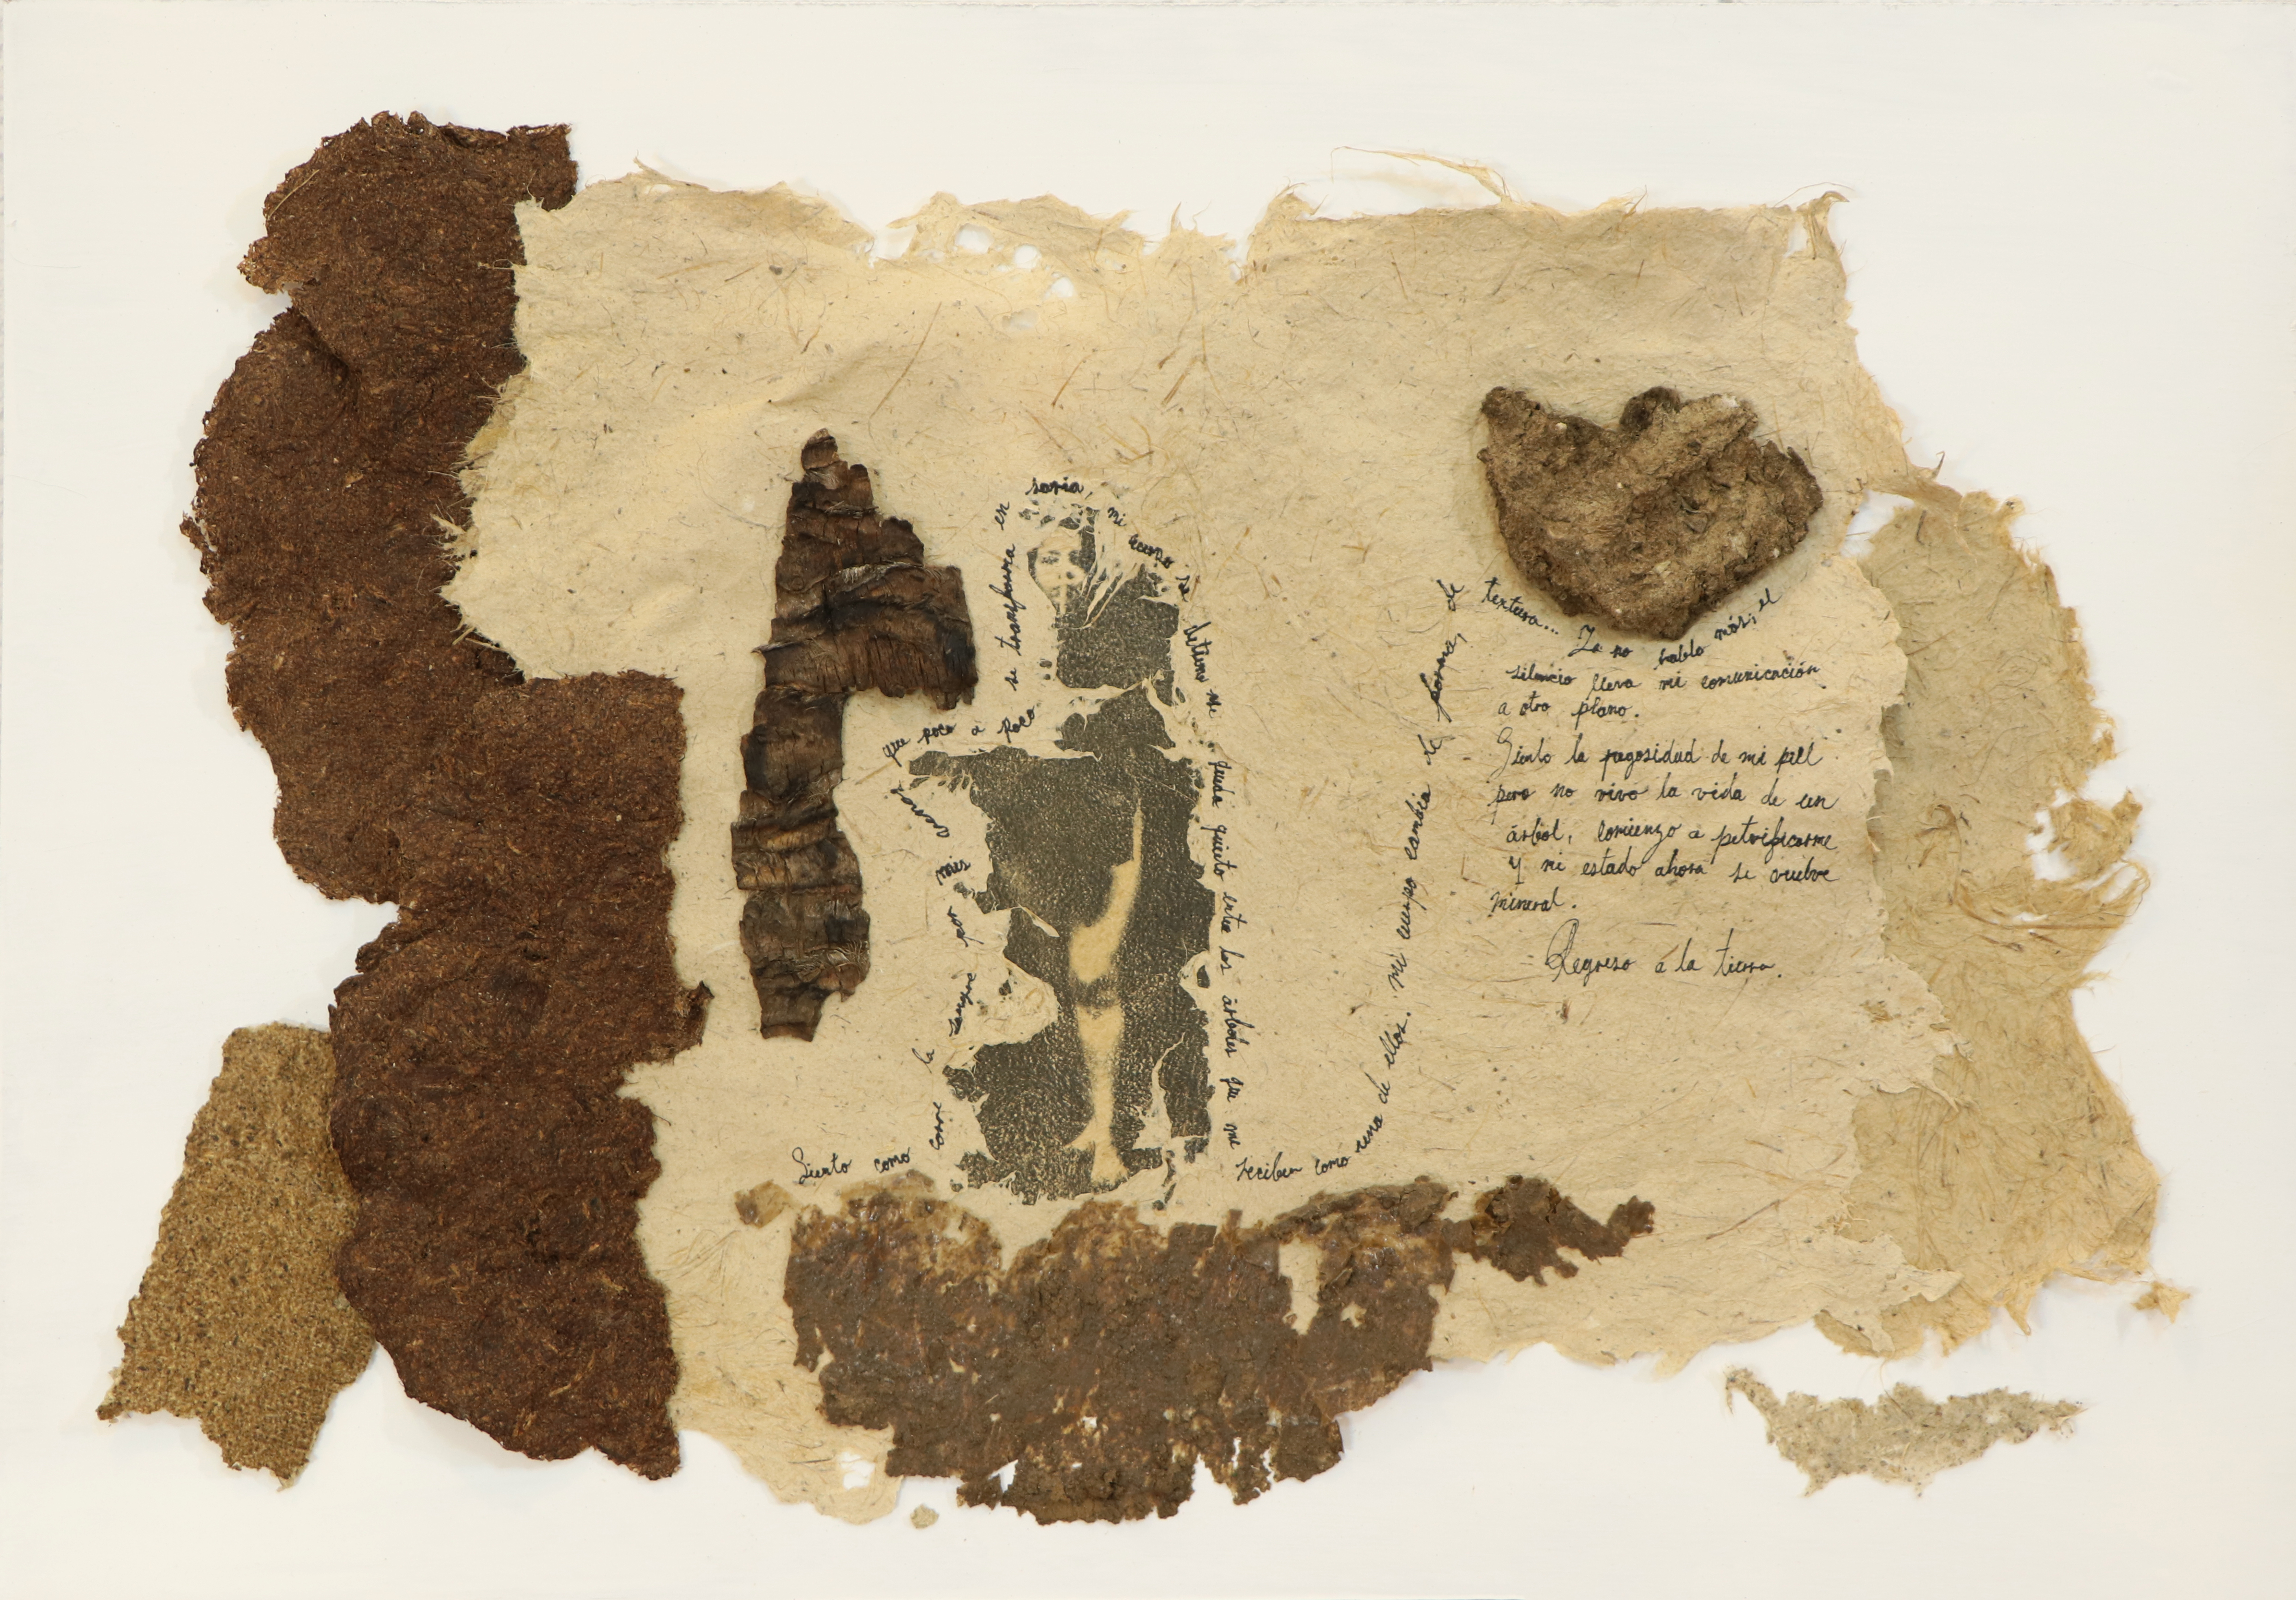 Siento como corre la sangre por mis
que poco a poco
se transforma en
savia,
mi cuerpo se
detiene me queda quieto entre los árboles que me
reciben como una de ellos. mi cuerpo cambia de forma, de
textura... Ya no hablo más, el
silencio lleva mi comunicación
a otro plano.
Siento la pegosidad de mi piel
pero no vivo la vida de un
árbol, comienzo a petrificarme
y mi estado ahora se vuelve
mineral.
Regreso a la tierra.